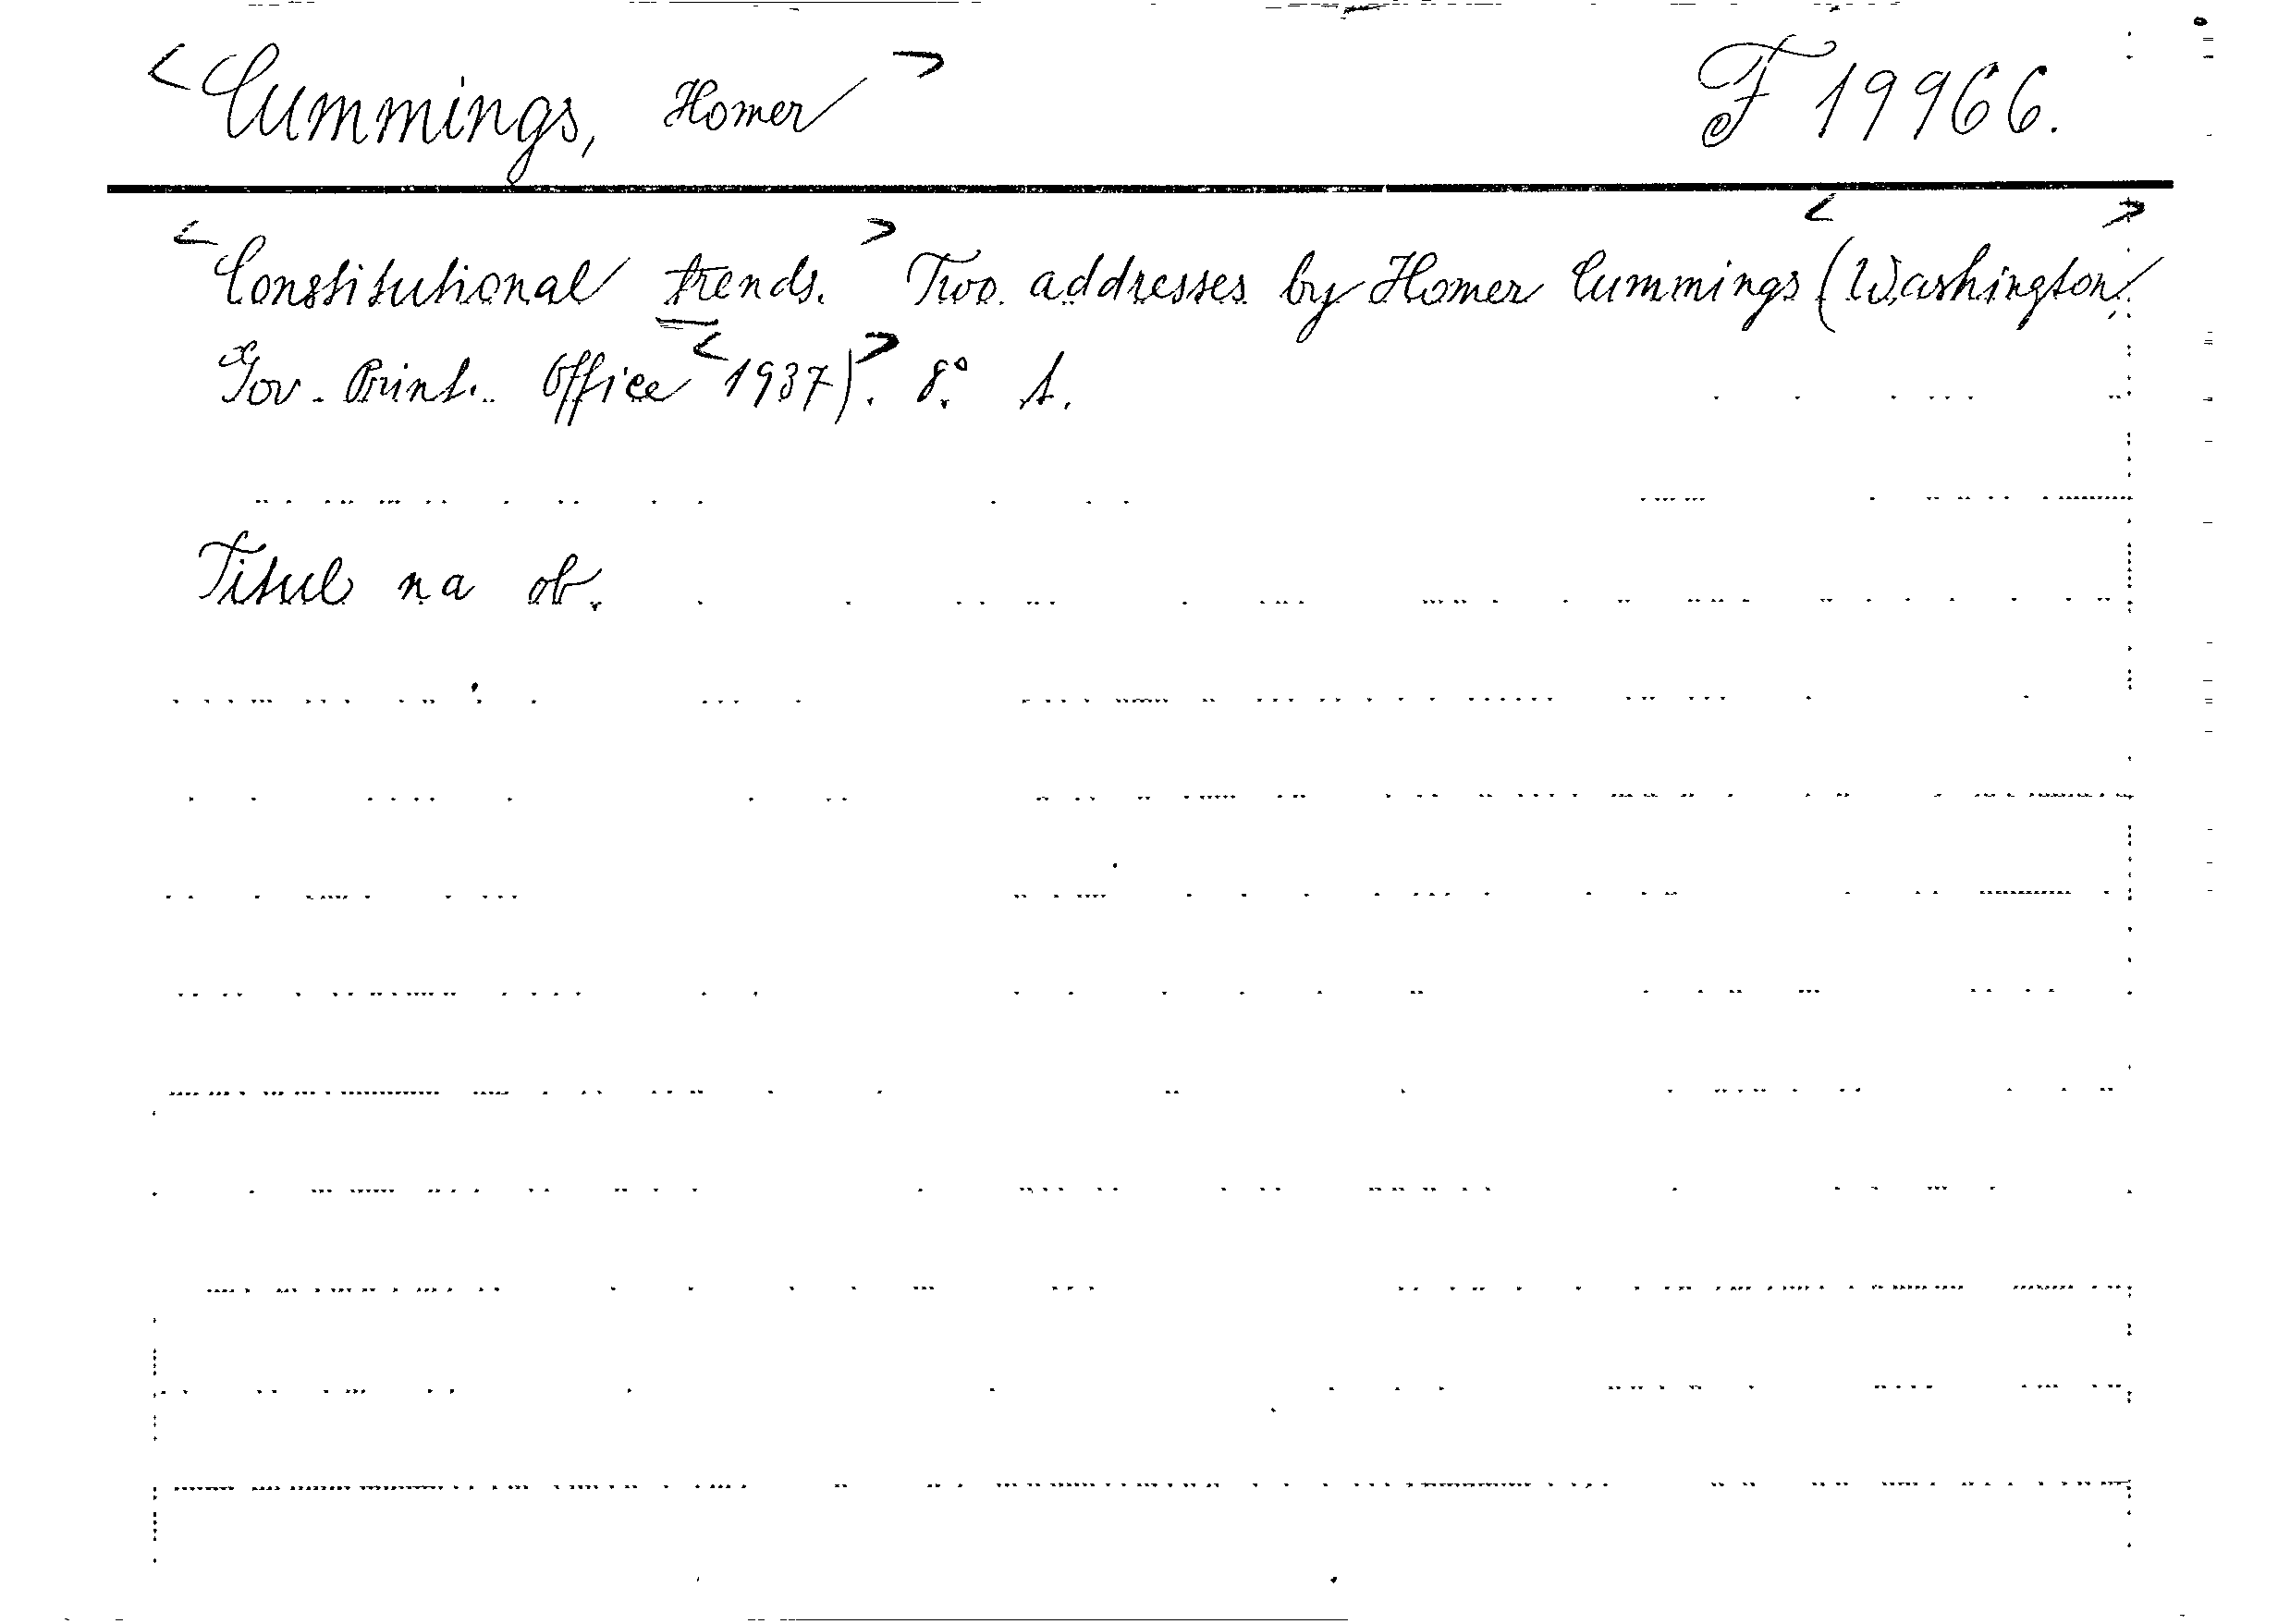 <Cummings, Homer> F 19966.
<Constitutional trends.> Two addresses by Homer Cummings (<Washington,>
Gov. Print. Office <1937)>. 8° 1.
Titul na ob.